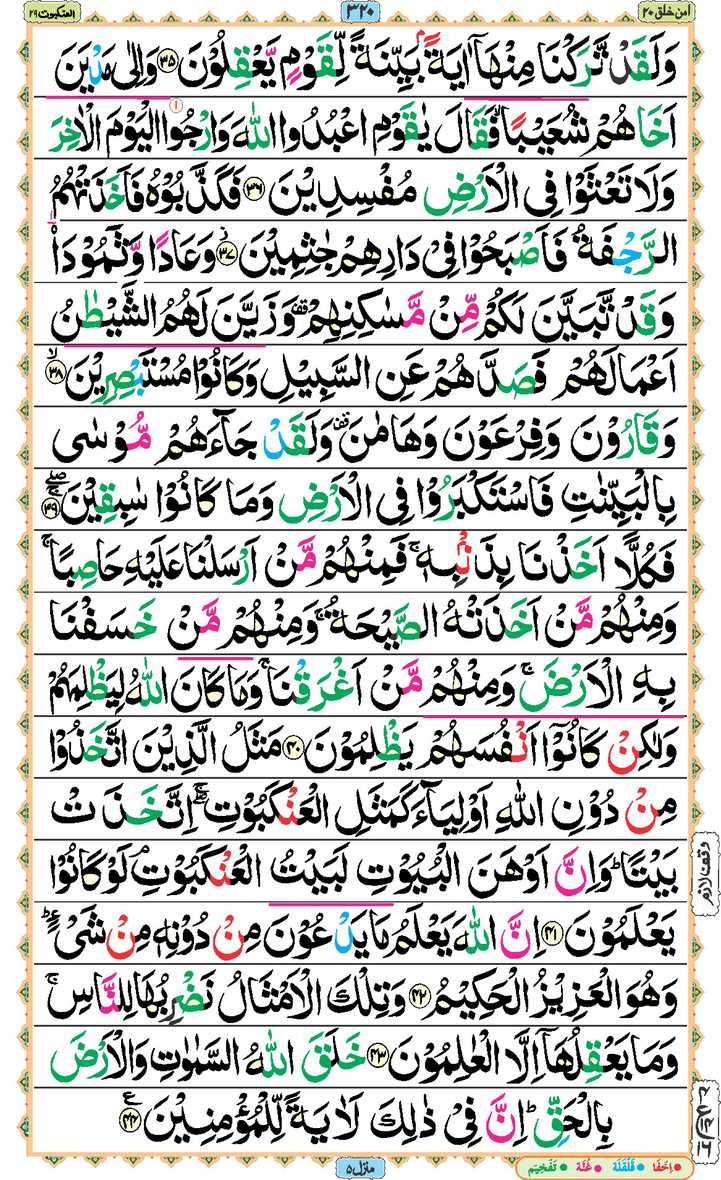 امن خلق ۲۰
۳۲۰
العنكبوت ۲۹
وَلَقَدْ تَّرَكْنَا مِنْهَآ اٰيَةًۢ بَيِّنَةً لِّقَوْمٍ يَّعْقِلُوْنَ ۳۵ وَاِلٰى مَدْيَنَ
اَخَاهُمْ شُعَيْبًا ۙ فَقَالَ يٰقَوْمِ اعْبُدُوا اللّٰهَ وَارْجُوا الْيَوْمَ الْاٰخِرَ
وَلَا تَعْثَوْا فِى الْاَرْضِ مُفْسِدِيْنَ ۳۶ فَكَذَّبُوْهُ فَاَخَذَتْهُمُ
الرَّجْفَةُ فَاَصْبَحُوْا فِىْ دَارِهِمْ جٰثِمِيْنَ ۳۷ وَعَادًا وَّثَمُوْدَا۟
وَقَدْ تَّبَيَّنَ لَكُمْ مِّنْ مَّسٰكِنِهِمْ ۗ وَزَيَّنَ لَهُمُ الشَّيْطٰنُ
اَعْمَالَهُمْ فَصَدَّهُمْ عَنِ السَّبِيْلِ وَكَانُوْا مُسْتَبْصِرِيْنَ ۙ ۳۸
وَقَارُوْنَ وَفِرْعَوْنَ وَهَامٰنَ ۗ وَلَقَدْ جَآءَهُمْ مُّوْسٰى
بِالْبَيِّنٰتِ فَاسْتَكْبَرُوْا فِى الْاَرْضِ وَمَا كَانُوْا سٰبِقِيْنَ ۳۹
فَكُلًّا اَخَذْنَا بِذَنْۢبِهٖ ۚ فَمِنْهُمْ مَّنْ اَرْسَلْنَا عَلَيْهِ حَاصِبًا ۚ
وَمِنْهُمْ مَّنْ اَخَذَتْهُ الصَّيْحَةُ ۚ وَمِنْهُمْ مَّنْ خَسَفْنَا
بِهِ الْاَرْضَ ۚ وَمِنْهُمْ مَّنْ اَغْرَقْنَا ۚ وَمَا كَانَ اللّٰهُ لِيَظْلِمَهُمْ
وَلٰكِنْ كَانُوْٓا اَنْفُسَهُمْ يَظْلِمُوْنَ ۴۰ مَثَلُ الَّذِيْنَ اتَّخَذُوْا
مِنْ دُوْنِ اللّٰهِ اَوْلِيَآءَ كَمَثَلِ الْعَنْكَبُوْتِ ۚ اِتَّخَذَتْ
بَيْتًا ؕ وَاِنَّ اَوْهَنَ الْبُيُوْتِ لَبَيْتُ الْعَنْكَبُوْتِ ۘ لَوْ كَانُوْا
يَعْلَمُوْنَ ۴۱ اِنَّ اللّٰهَ يَعْلَمُ مَا يَدْعُوْنَ مِنْ دُوْنِهٖ مِنْ شَىْءٍ ؕ
وَهُوَ الْعَزِيْزُ الْحَكِيْمُ ۴۲ وَتِلْكَ الْاَمْثَالُ نَضْرِبُهَا لِلنَّاسِ ۚ
وَمَا يَعْقِلُهَآ اِلَّا الْعٰلِمُوْنَ ۴۳ خَلَقَ اللّٰهُ السَّمٰوٰتِ وَالْاَرْضَ
بِالْحَقِّ ؕ اِنَّ فِىْ ذٰلِكَ لَاٰيَةً لِّلْمُؤْمِنِيْنَ ۴۴
وقف لازم
منزل ۵
اِخفَا قَلقَلَه غُنَّه تَفْخِيْم